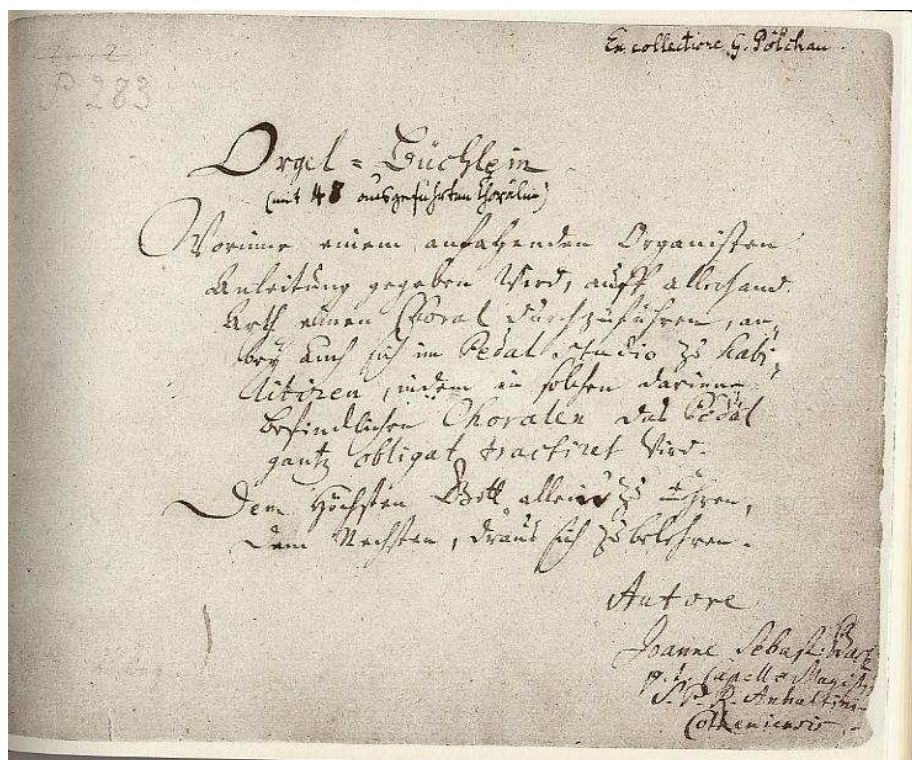 P 283
Ex collectione G. Pölchau.
Orgel-Büchlein
(mit 48 ausgeführten Chorälen)
Worinne einem anfahenden Organisten
Anleitung gegeben wird, auff allerhand
Arth einen Choral durchzuführen, an-
bey auch sich im Pedal studio zu habi-
litiren, indem in solchen darinne
befindlichen Choralen das Pedal
gantz obligat tractiret wird.
Dem Höchsten Gott allein zu Ehren,
Dem Nechsten, draus sich zu belehren.
Autore
Joanne Sebast. Bach
p. t. Capellæ Magistri
S. P. R. Anhaltini-
Cotheniensis.